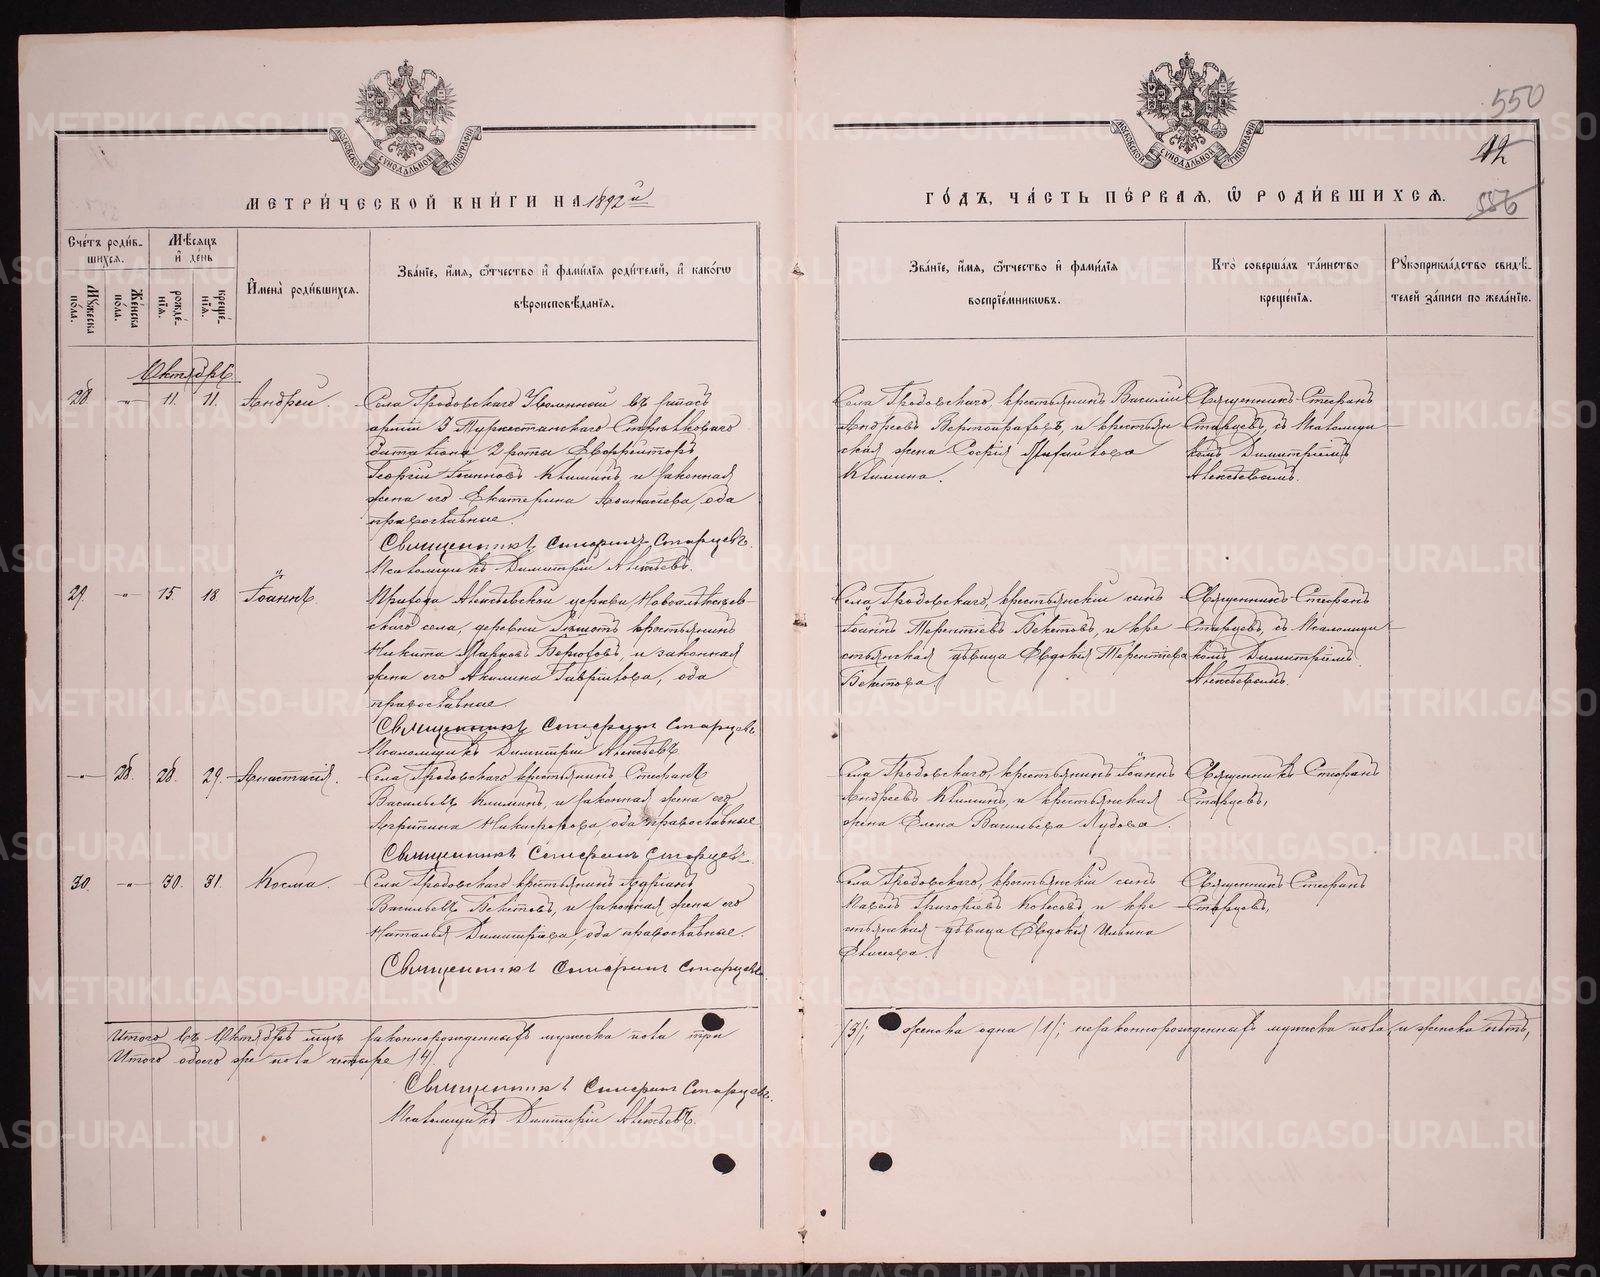 550
12
556
МОСКОВСКОЙ СУНОДАЛЬНОЙ ТИПОГРАФИИ
МОСКОВСКОЙ СУНОДАЛЬНОЙ ТИПОГРАФИИ
МЕТРИ́ЧЕСКОЙ КНИ́ГИ НА 1892й
ГО́ДЪ, ЧА́СТЬ ПЕ́РВАЯ, Ѡ РОДИ́ВШИХСЯ.
Сче́тъ роди́в-
шихся.
Му́жеска по́ла.
Же́нска по́ла.
Мѣ́сяцъ
и де́нь
рожде́нїя.
креще́нїя.
Имена̀ роди́вшихся.
Зва́нїе, и́мя, ѻ́тчество и фами́лїя роди́телей, и како́гѡ
вѣроисповѣ́данїя.
Зва́нїе, и́мя, ѻ́тчество и фами́лїя
воспрїе́мникѡвъ.
Кто̀ соверша́лъ та́инство
креще́нїя.
Рꙋкоприкла́дство свидѣ́-
телей за́писи по жела́нїю.
Октябрь
28. -"- 11. 11. Андрей.
Села Гродовскаго Уволенный въ запасъ
армии 3 Туркестанскаго Стрѣлковаго
баталіона 2 роты Ефрейторъ
Георгій Іоанновъ Климинъ, и законная
жена его Екатерина Аѳанасіева, оба
православные.
Священникъ Стефанъ Старцевъ.
Псаломщикъ Димитрій Алексѣевъ.
Села Гродовскаго, крестьянинъ Василій
Андреевъ и крестьян
ская жена Софія
Климина.
Священникъ Стефанъ
Старцевъ, съ Псаломщи
комъ Димитріемъ
Алексѣевымъ.
29. -"- 15. 18. Іоаннъ.
Прихода Алексѣевской церкви Новоалексѣев-
скаго села, деревни крестьянинъ
Никита Марковъ и законная
жена его Акилина Гавріилова, оба
православные.
Священникъ Стефанъ Старцевъ
Псаломщикъ Димитрій Алексѣевъ.
Села Гродовскаго, крестьянскій сынъ
Іоаннъ Терентіевъ Бектовъ, и кре
стьянская дѣвица Евдокія Терентіева
Бектова.
Священникъ Стефанъ
Старцевъ, съ Псаломщи
комъ Димитріемъ
Алексѣевымъ.
-"- 28. 28. 29. Анастасія.
Села Гродовскаго крестьянинъ Стефанъ
Васильевъ Климинъ, и законная жена его
Агрипина Никифорова, оба православные
Священникъ Стефанъ Старцевъ.
Села Гродовскаго, крестьянинъ Іоаннъ
Андреевъ Климинъ, и крестьянская
жена Елена Васильева
Священникъ Стефанъ
Старцевъ,
30. -"- 30. 31. Косма.
Села Гродовскаго крестьянинъ Адріанъ
Васильевъ Бектовъ, и законная жена его
Наталья Димитріева, оба православные.
Священникъ Стефанъ Старцевъ.
Села Гродовскаго, крестьянскій сынъ
Павелъ Григоріевъ и кре
стьянская дѣвица Евдокія Ильина
Елисеева.
Священникъ Стефанъ
Старцевъ,
Итого въ Октябрѣ мѣс. законнорожденныхъ мужеска пола три /3/; женска одна /1/; незаконнорожденныхъ мужеска пола и женска нѣтъ,
Итого обоего же пола четыре /4/.
Священникъ Стефанъ Старцевъ.
Псаломщикъ Димитрій Алексѣевъ.
METRIKI.GASO-URAL.RU